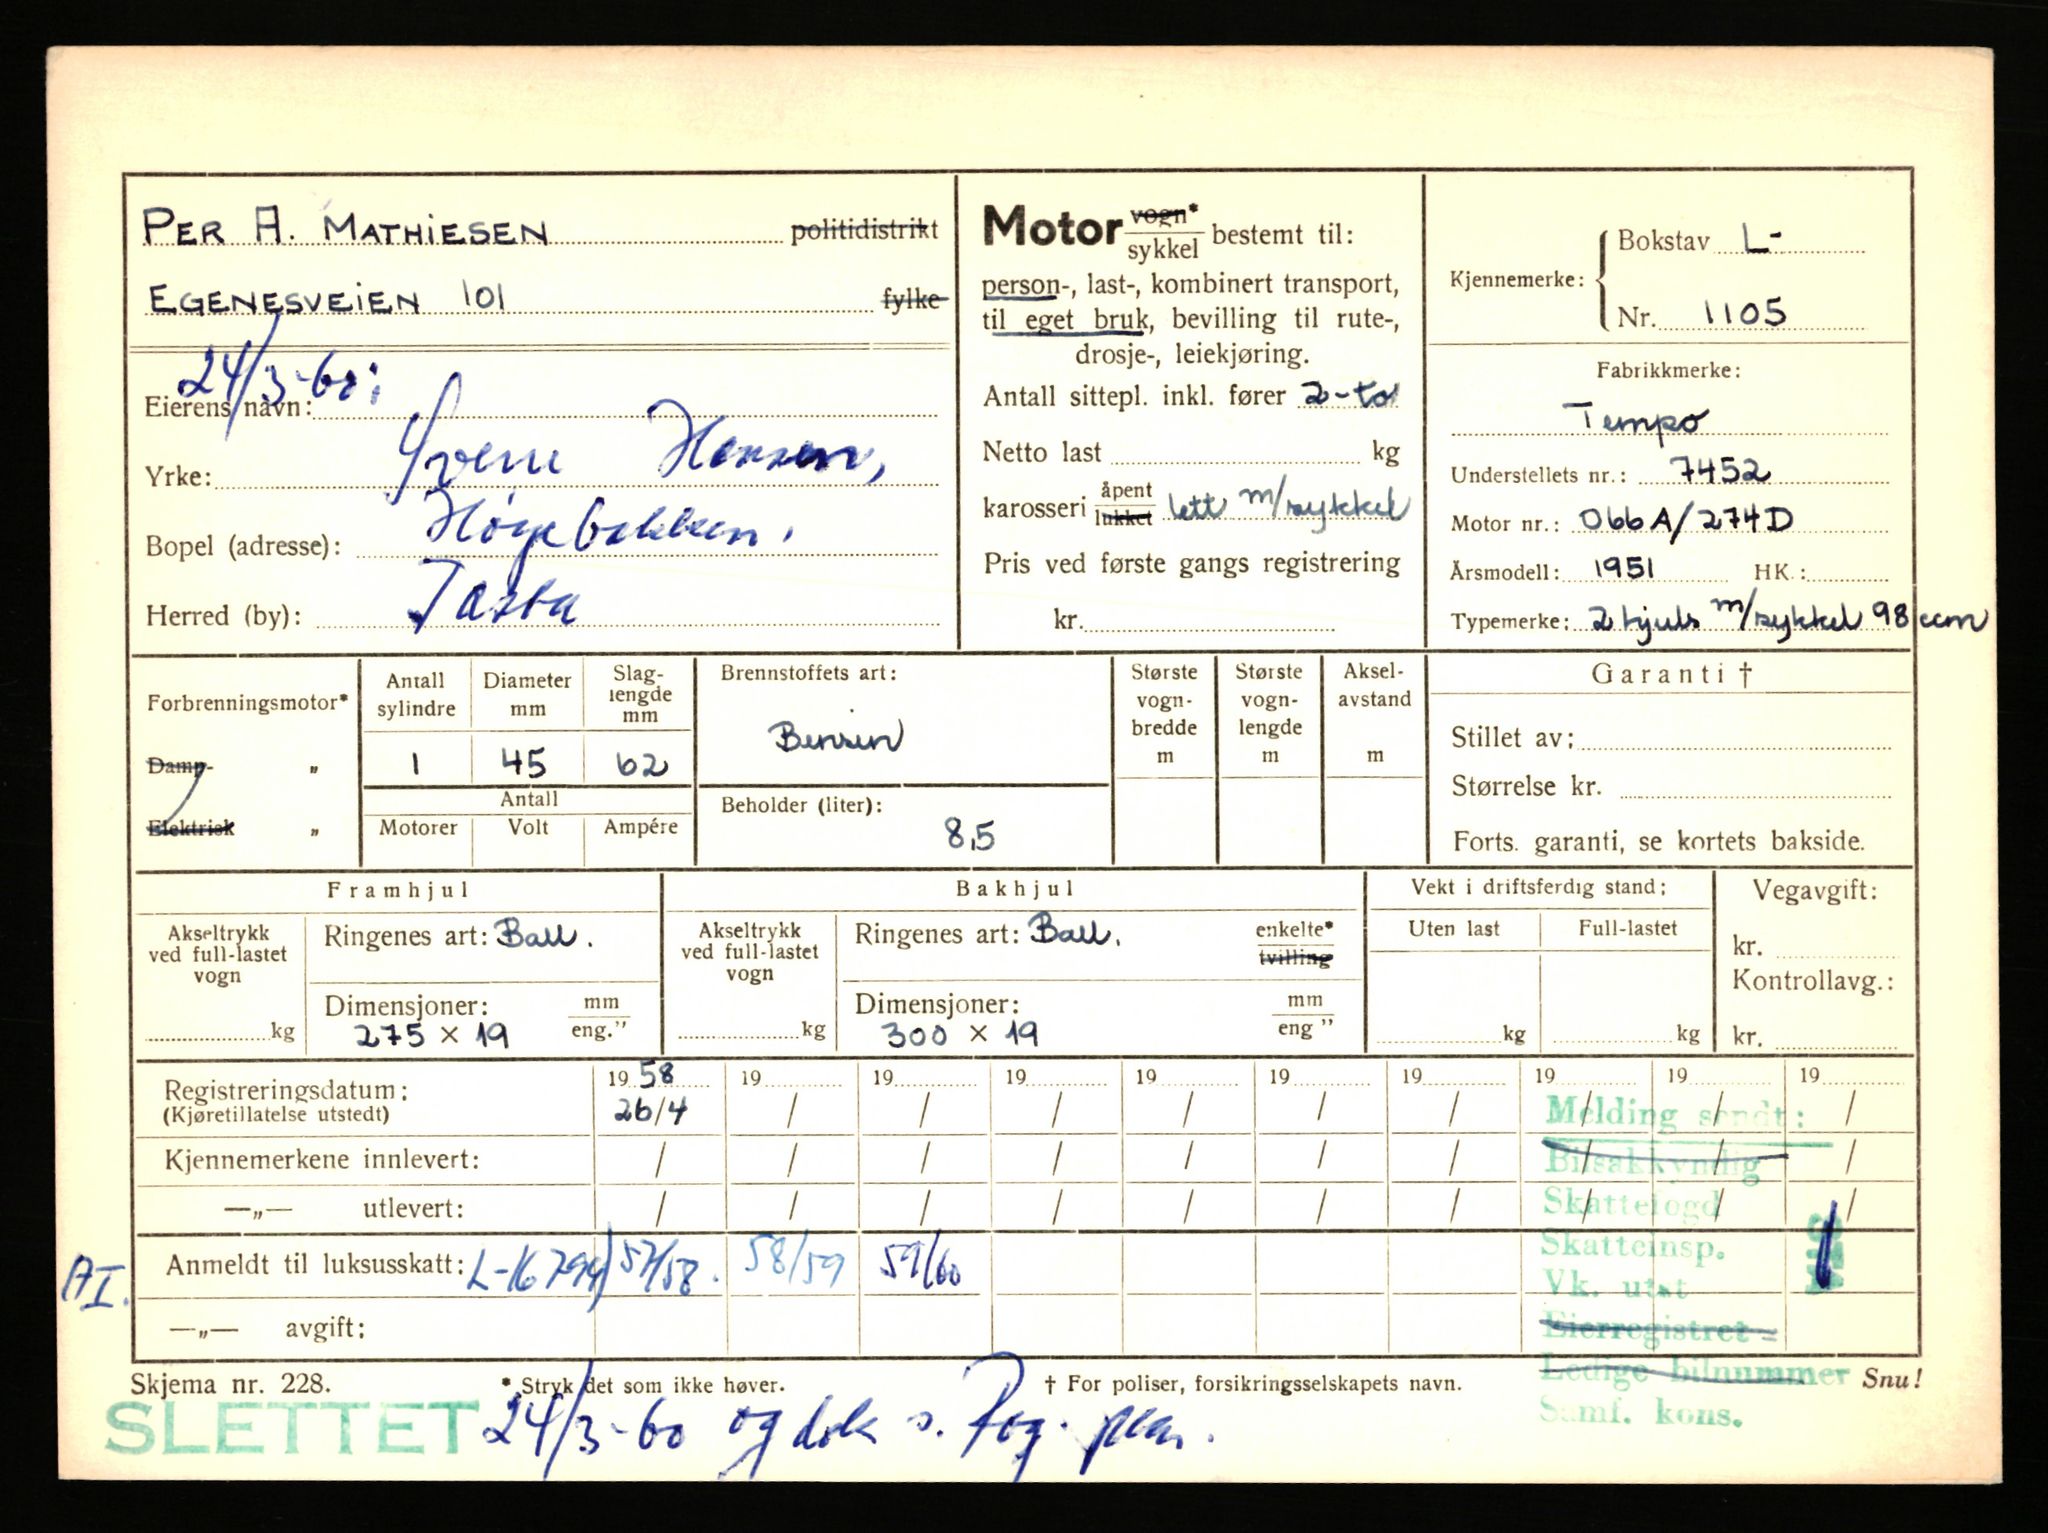 PER A. MATHIESEN politidistrikt
EGENESVEIEN 101 fylke
24/3-60:
Eierens navn:
Yrke: Hansen,
Bopel (adresse):
Herred (by): Tasta
Motor vogn* sykkel bestemt til:
person-, last-, kombinert transport,
til eget bruk, bevilling til rute-,
drosje-, leiekjøring.
Antall sittepl. inkl. fører 2-to
Netto last kg
karosseri åpent lukket lett m/sykkel
Pris ved første gangs registrering
kr.
Kjennemerke: Bokstav L-
Nr. 1105
Fabrikkmerke:
Tempo
Understellets nr.: 7452
Motor nr.: 066A/274D
Årsmodell: 1951 HK.:
Typemerke: 2 hjuls m/sykkel 98 ccm
Forbrenningsmotor*
Damp- „
Elektrisk „
Antall sylindre
1
Diameter mm
45
Slag-lengde mm
62
Antall
Motorer Volt Ampére
Brennstoffets art:
Bensin
Beholder (liter):
8,5
Største vogn-bredde m
Største vogn-lengde m
Aksel-avstand m
Garanti †
Stillet av:
Størrelse kr.
Forts. garanti, se kortets bakside.
Framhjul
Akseltrykk ved full-lastet vogn
kg
Ringenes art: Ball.
Dimensjoner: mm eng."
275 × 19
Bakhjul
Akseltrykk ved full-lastet vogn
kg
Ringenes art: Ball. enkelte* tvilling
Dimensjoner: mm eng "
300 × 19
Vekt i driftsferdig stand:
Uten last Full-lastet
kg kg
Vegavgift:
kr.
Kontrollavg.:
kr.
Registreringsdatum: 19 58 19 19 19 19 19 19 19 19 19
(Kjøretillatelse utstedt) 26/4 / / / / / / / / /
Kjennemerkene innlevert: / / / / / / / / / /
—„— utlevert: / / / / / / / / / /
Anmeldt til luksusskatt: 57/58. 58/59 59/60
AI.
—„— avgift:
Melding sendt:
Bilsakkyndig
Skattefogd
Skatteinsp.
Vk. utst
Eierregistret
Ledige bilnummer
Samf. kons.
Skjema nr. 228. * Stryk det som ikke høver. † For poliser, forsikringsselskapets navn. Snu!
SLETTET 24/3-60 og